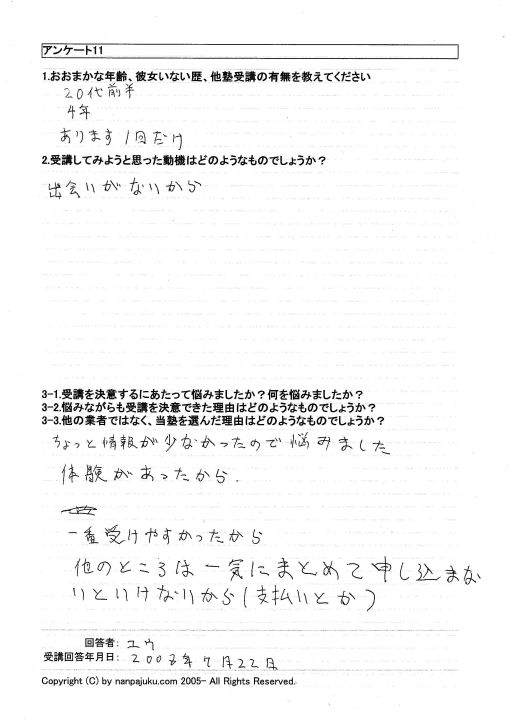 アンケート11
1.おおまかな年齢、彼女いない歴、他塾受講の有無を教えてください
20代前半
4年
あります 1回だけ
2.受講してみようと思った動機はどのようなものでしょうか？
出会いがないから
3-1.受講を決意するにあたって悩みましたか？何を悩みましたか？
3-2.悩みながらも受講を決意できた理由はどのようなものでしょうか？
3-3.他の業者ではなく、当塾を選んだ理由はどのようなものでしょうか？
ちょっと情報が少なかったので悩みました
体験があったから.
一番受けやすかったから
他のところは一気にまとめて申し込まな
いといけないから(支払いとか)
回答者: ユウ
受講回答年月日: 年7月22日
Copyright (C) by nanpajuku.com 2005- All Rights Reserved.